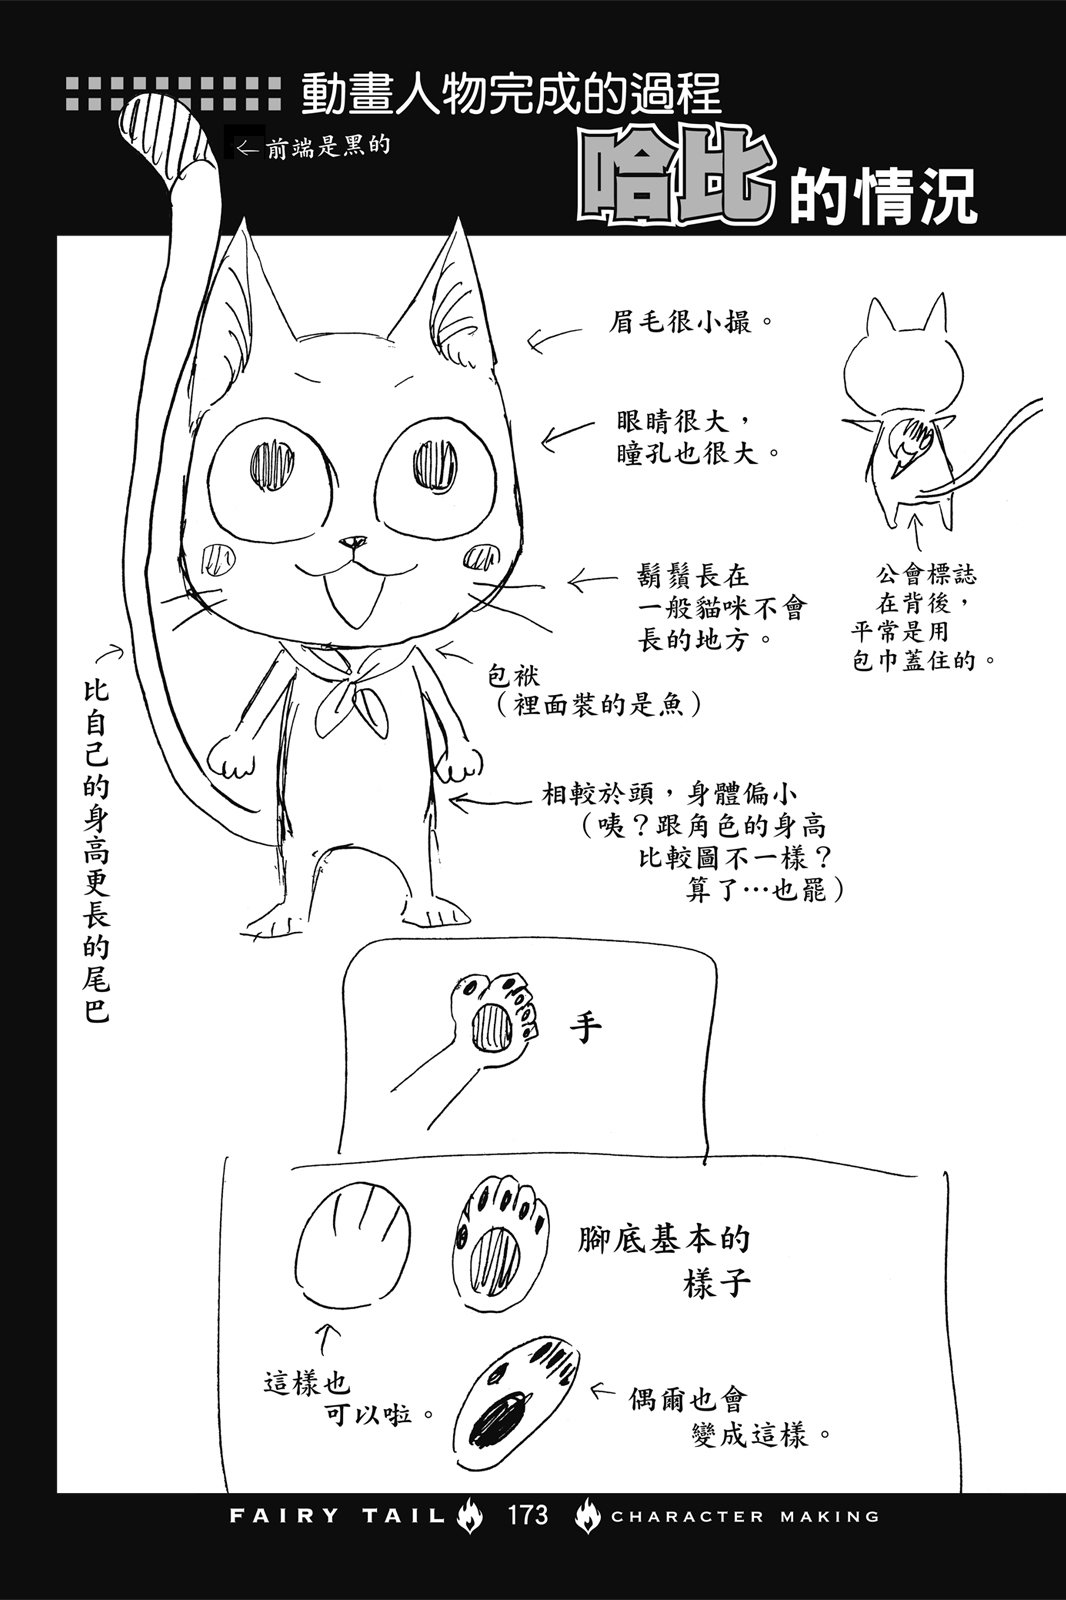 動畫人物完成的過程
哈比的情況
←前端是黑的
眉毛很小撮。
眼睛很大，
瞳孔也很大。
鬍鬚長在
一般貓咪不會
長的地方。
公會標誌
在背後，
平常是用
包巾蓋住的。
包袱
（裡面裝的是魚）
比自己的身高更長的尾巴
相較於頭，身體偏小
（咦？跟角色的身高
比較圖不一樣？
算了…也罷）
手
腳底基本的
樣子
這樣也
可以啦。
偶爾也會
變成這樣。
FAIRY TAIL 173 CHARACTER MAKING